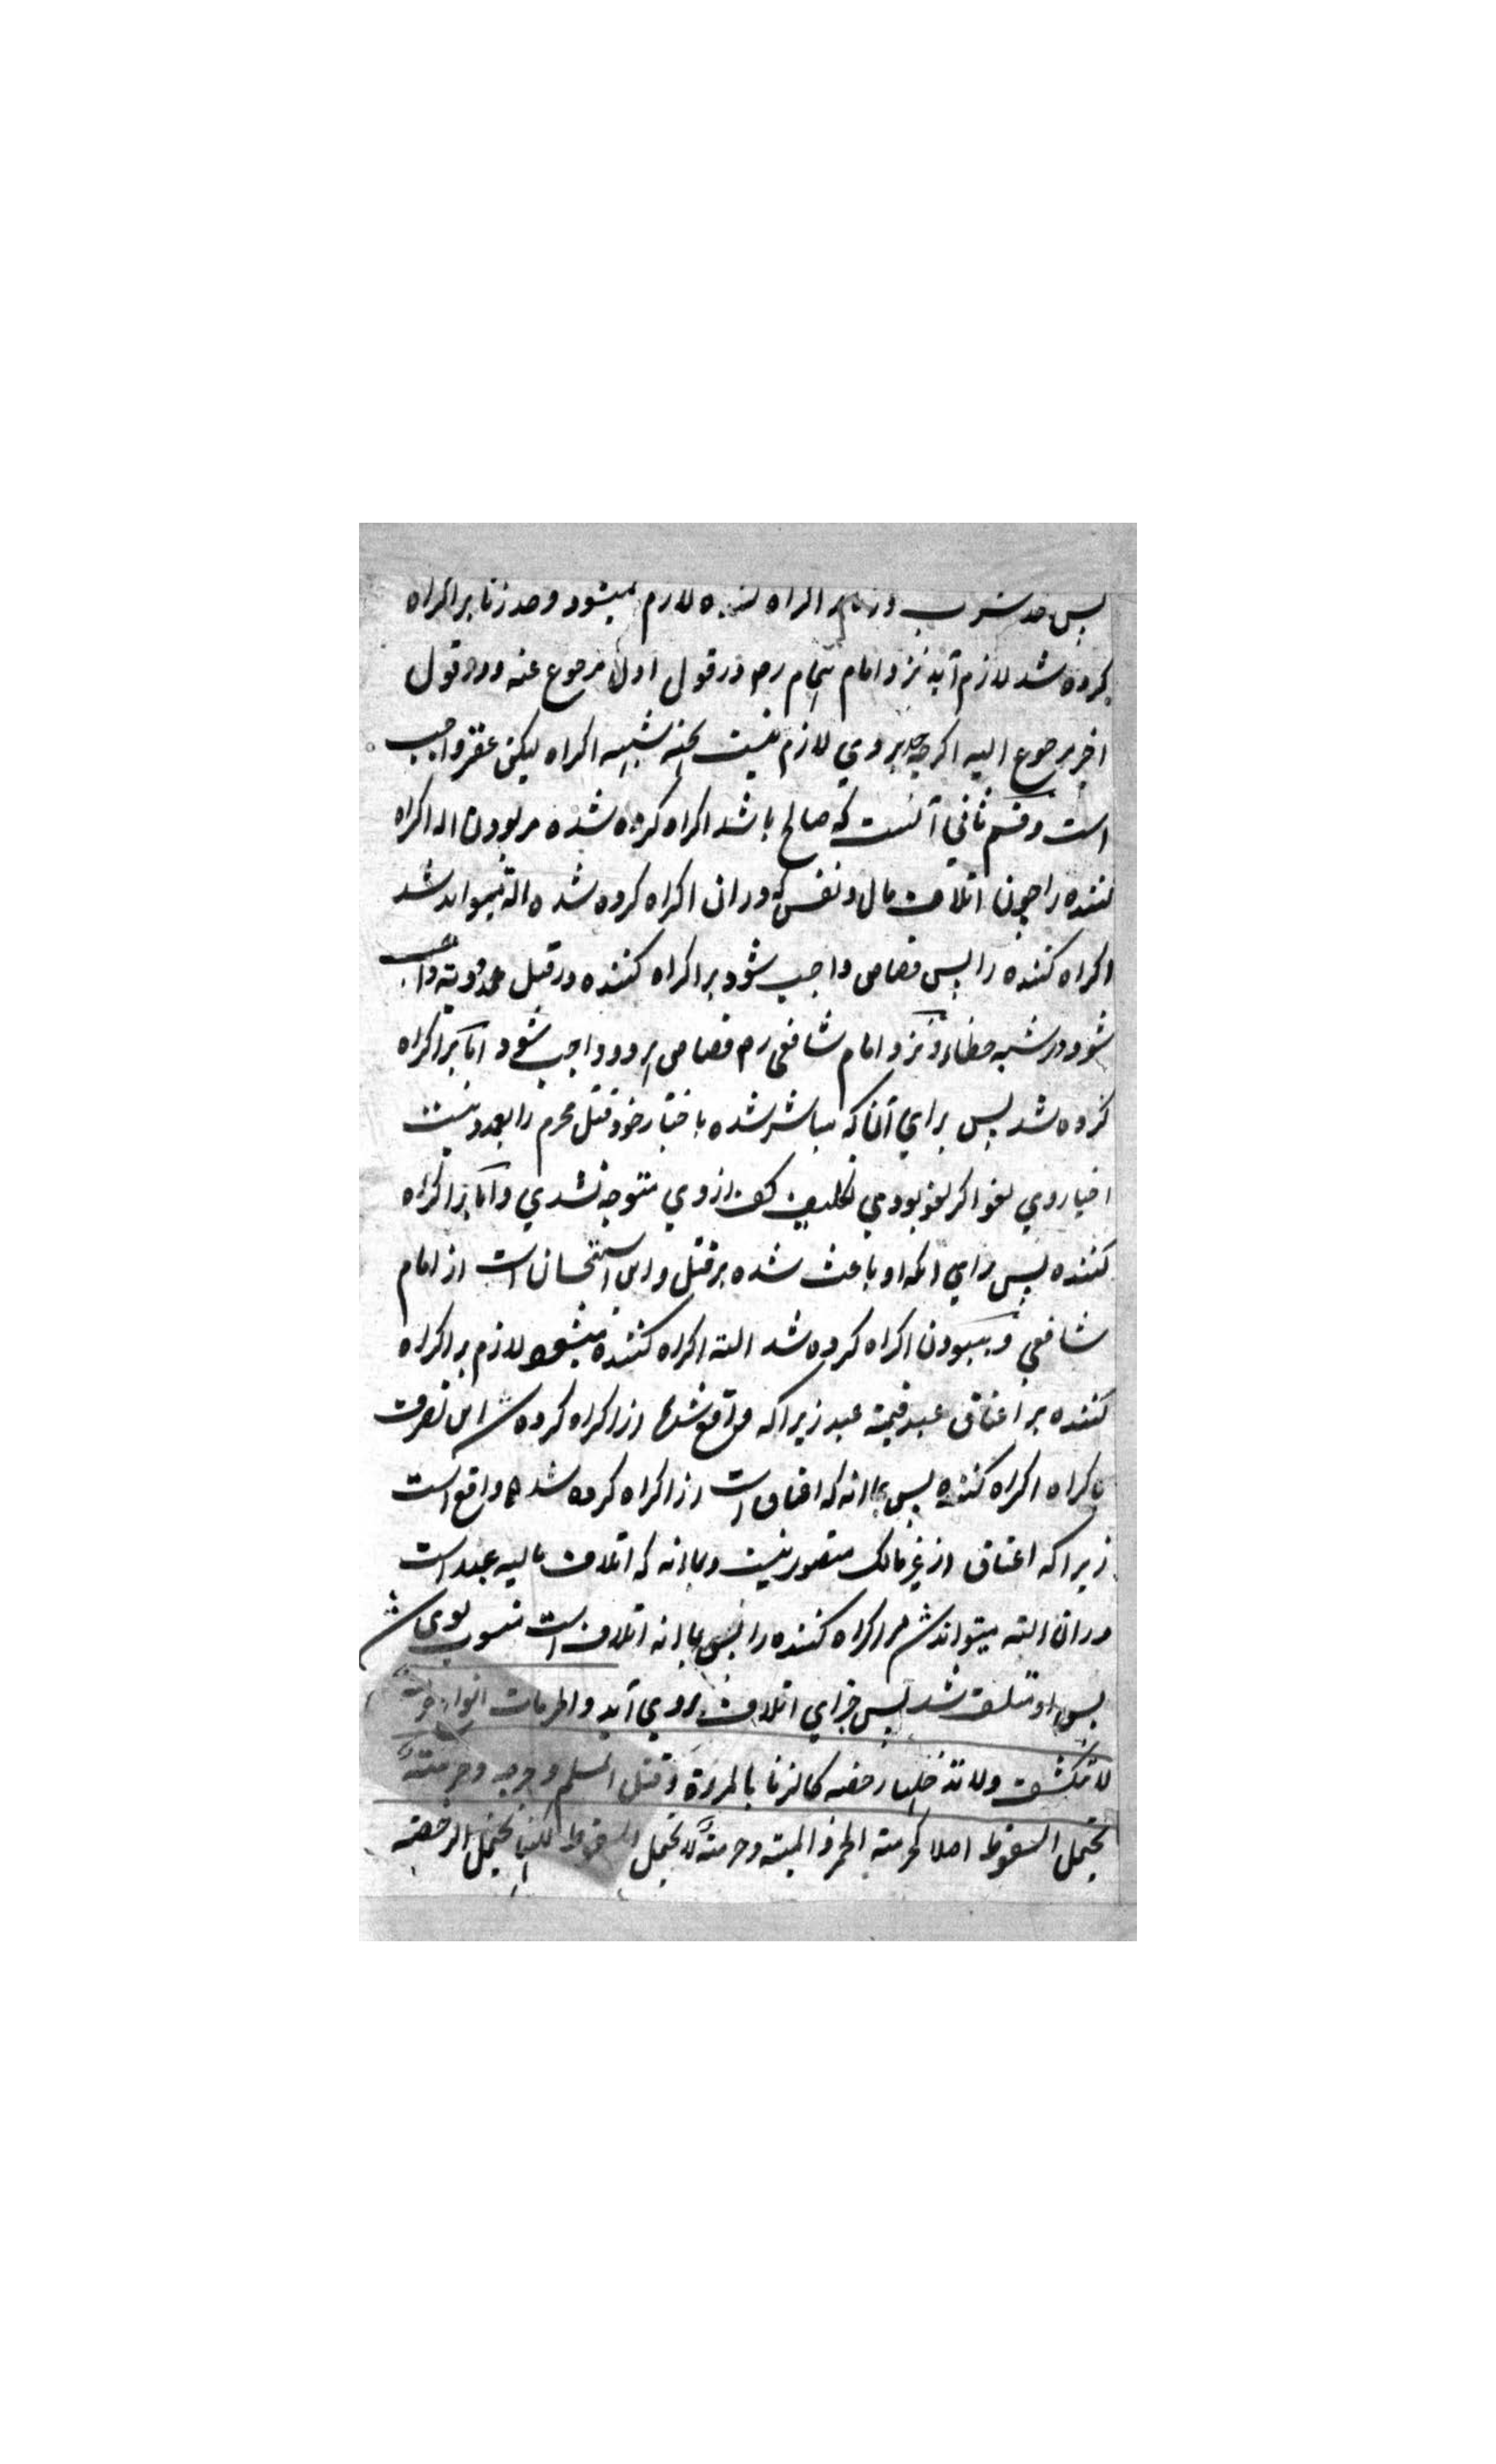 پس حد شرب وزنا بر اکراه کننده لازم نمیشود وحد زنا بر اکراه
کرده شد لازم آید نزد امام همام رح در قول اول مرجوع عنه ودر قول
اخیر مرجوع الیه اکرچه حد بروی لازم نیست بجهة شبهه اکراه لیکن عقر واجب
است وقسم ثانی آنست که صالح باشد اکراه کرده شده مر بودن اله اکراه
کننده را چون اتلاف مال ونفس که دران اکراه کرده شده اله میتواند شد
اکراه کننده را پس قصاص واجب شود بر اکراه کننده در قتل عمد ودیة واجب
شود در شبه خطاء ونزد امام شافعی رح قصاص بر دو واجب شود اما بر اکراه
کرده شد پس برای آنکه مباشر شده باختیار خود قتل محرم را بعمد ونیست
اختیار وی لغو اکر لغو بودی تکلیف کف ازوی متوجه نشدی واما بر اکراه
کننده پس برای انکه او باعث شده بر قتل واین استحسان است از امام
شافعی وبسبب بودن اکراه کرده شد الته اکراه کننده میشود لازم بر اکراه
کننده بر اعتاق عبد قیمة عبد زیرا که واقع شد از اکراه کرده ش این تصرف
باکراه اکراه کننده پس بانه که اعتاق است از اکراه کرده شد واقع است
زیرا که اعتاق از غیر مالک متصور نیست وبانه که اتلاف مالیه عبد است
دران الته میتواند ش مر اکراه کننده را پس بانه اتلاف است منسوب بوی ش
پس او متلف شد پس جزای اتلاف بروی آید والحرمات انواع حرمة
لا تنکشف ولا تدخلها رخصه کالزنا بالمرءة وقتل المسلم وجرحه وحرمتة
تحتمل السقوط اصلا کحرمته الخمر والمیته وحرمتة لا تحتمل السقوط لکنها تحتمل الرخصة